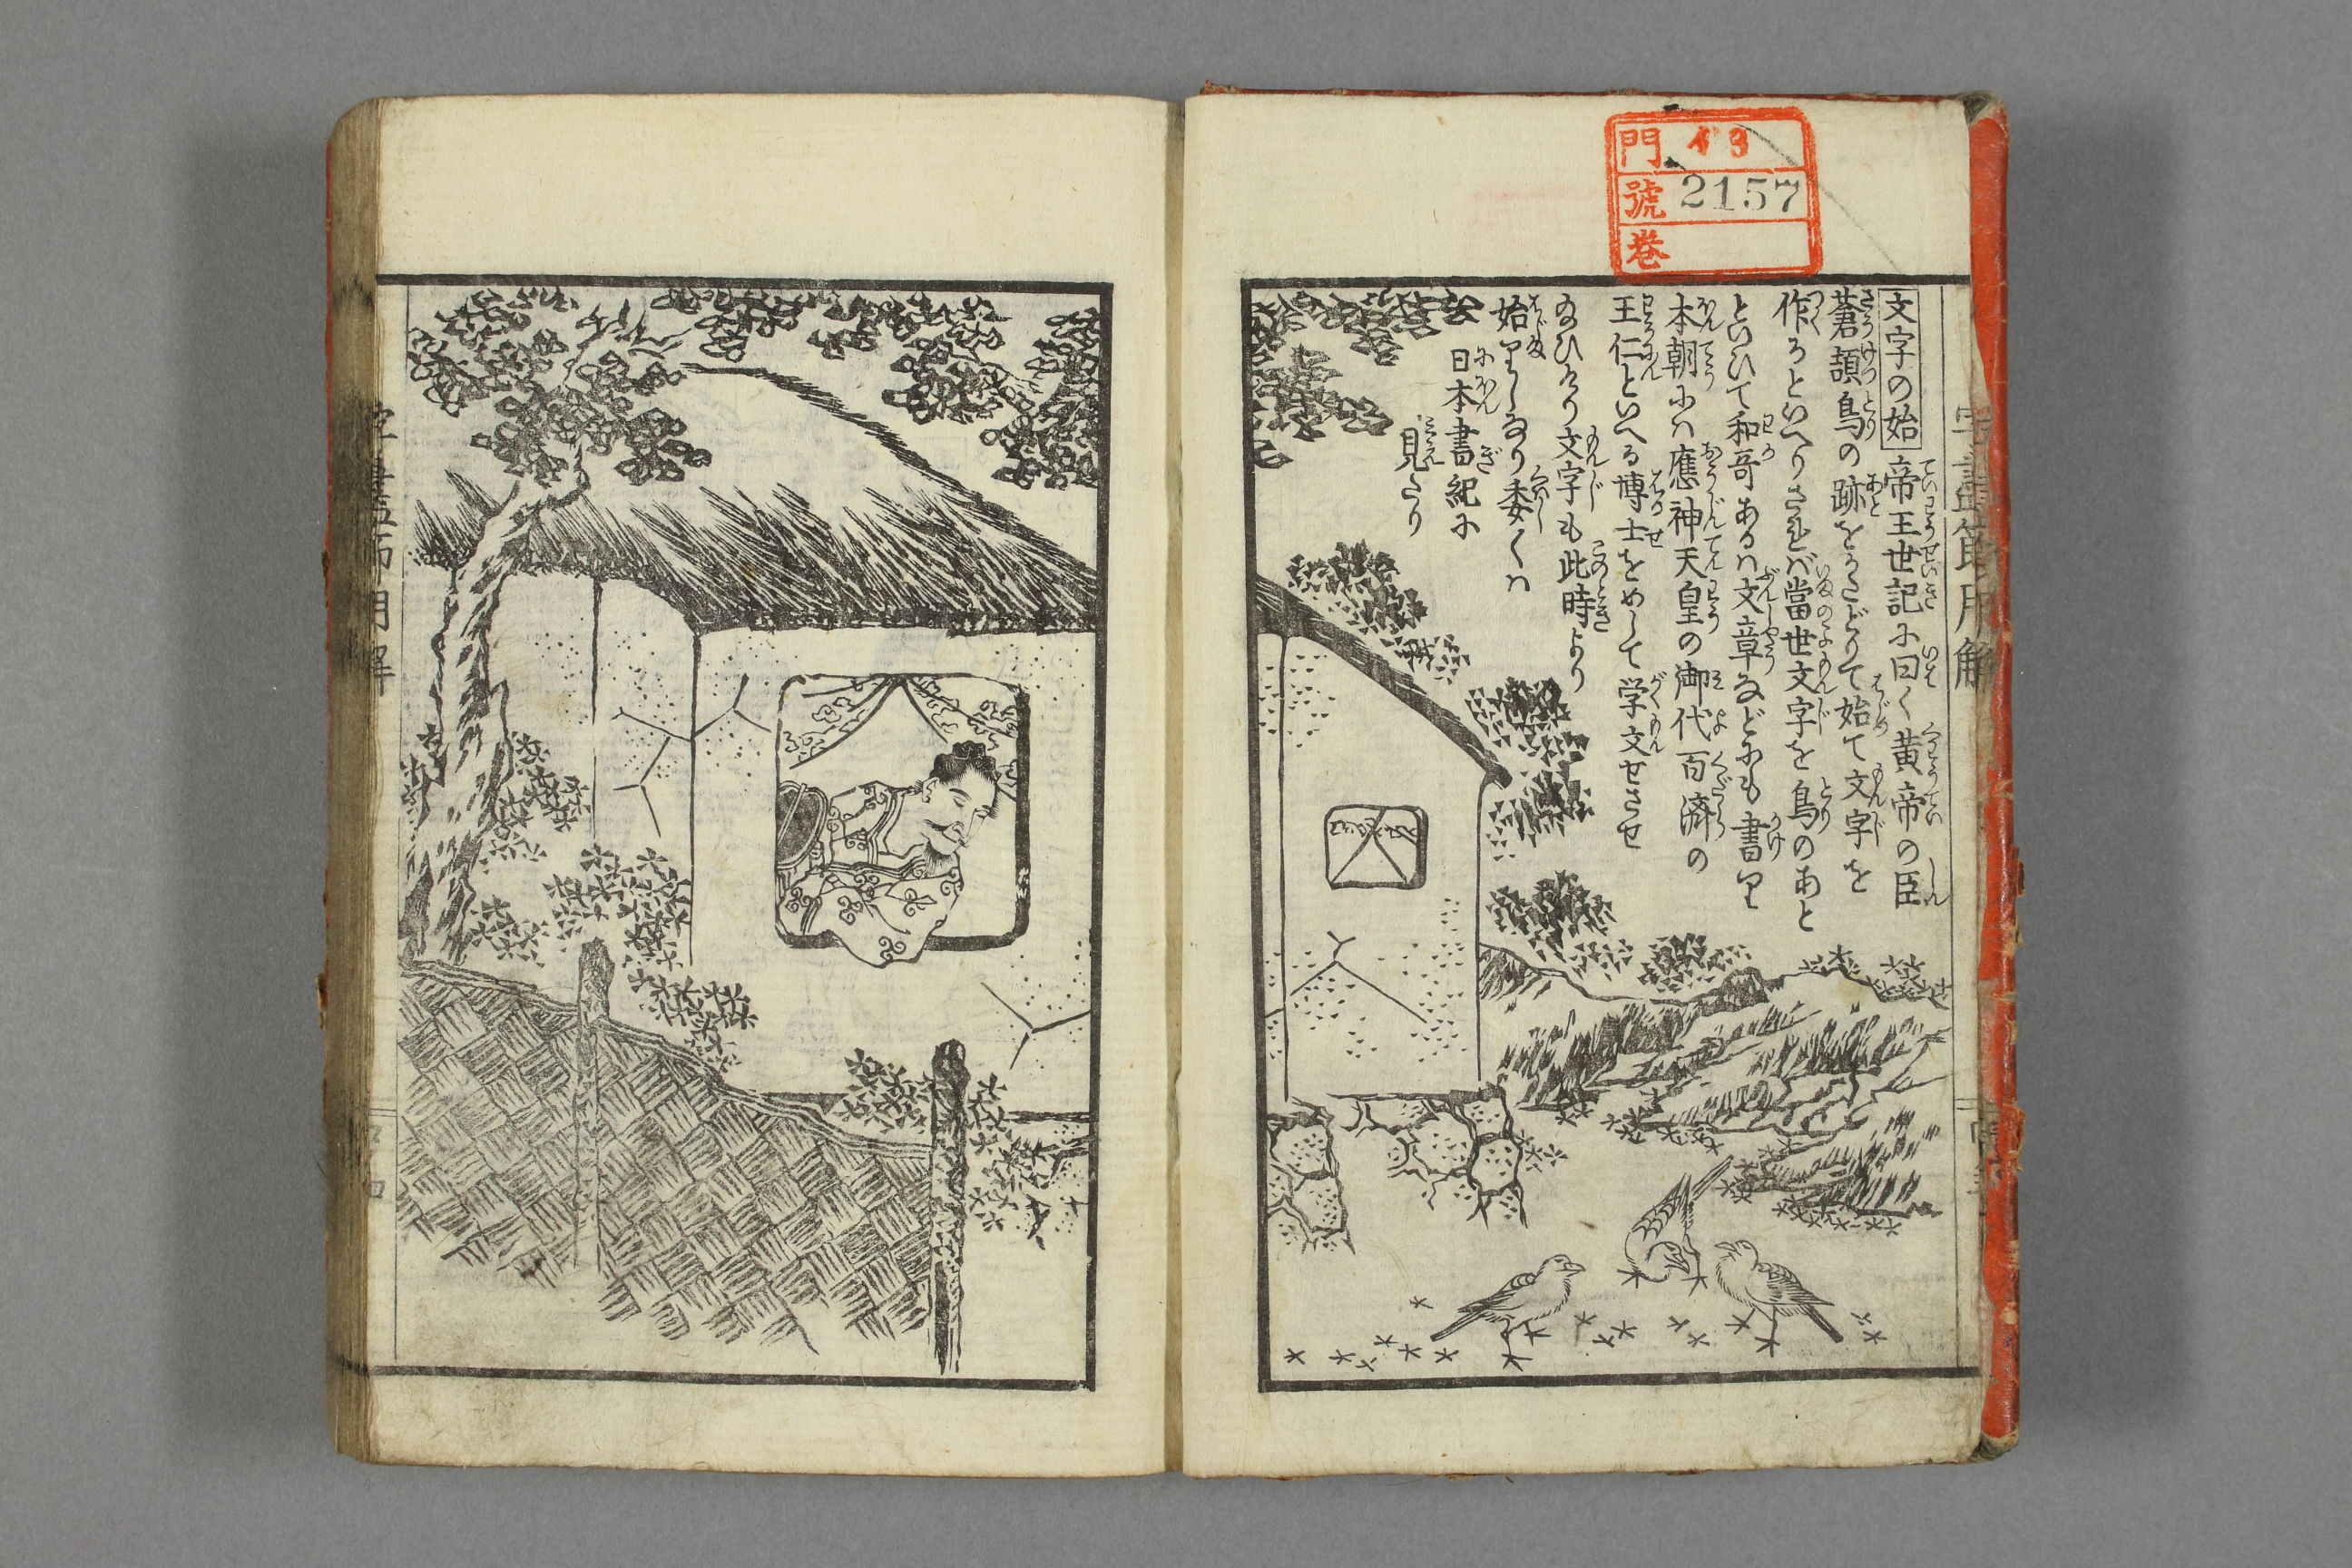 門 13
號 2157
巻
文字の始 帝王世記に曰く黄帝の臣
蒼頡鳥の跡をかたどりて始て文字を
作るといへりされバ當世文字を鳥のあと
といひて和哥あるハ文章などにも書り
本朝にハ應神天皇の御代百済の
王仁といへる博士をめして学文せさせ
給ひけり文字も此時より
始りしなり委くハ
日本書紀に
見へたり